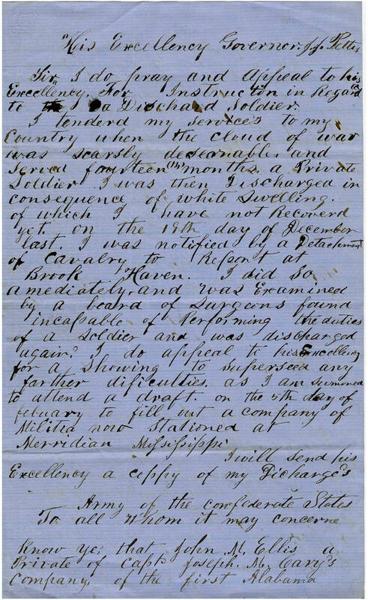 "His Excellency Governor J.J. Pettus
Sir I do pray and Appeal to his
Excellency. For Instruction in Regard
to a Dischard Soldier.
I tenderd my services to my
Country when the cloud of war
was scarsly decernable, and
served fourteen months, a Private
Soldier I was then Discharged in
consequence of White Swelling.
of which I have not Recoverd
yet. on the 18th day of December
last. I was notified by a Detachment
of Cavalry to Report at
Brook Haven. I did so
amediately and was Examined
by a board of Surgeons found
incapable of Performing the duties
of a Soldier and was discharged
again. I do appeal to his Excellency
for a Showing to superseed any
farther dificulties as I am Sumoned
to attend a draft on the 5th day of
febuary to fill out a company of
Militia now Stationed at
Merridian Mississippi
I will send his
Excellency a coppy of my Dicharge's
Army of the confederate States
To all whom it may concerne
Know ye, that John M. Ellis a
Private of Capt. Joseph. M. Cary's
Company, of the first Alabama